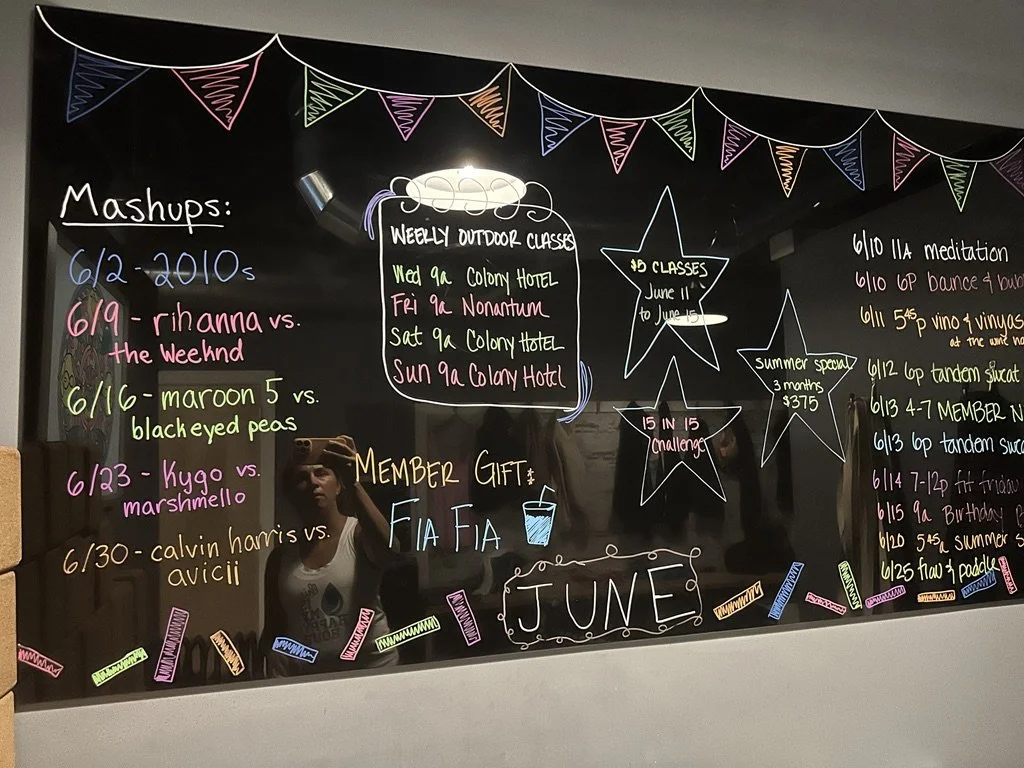 Mashups:
6/2 - 2010s
6/9 - rihanna vs.
the Weeknd
6/16 - maroon 5 vs.
black eyed peas
6/23 - Kygo vs.
marshmello
6/30 - calvin harris vs.
avicii
WEEKLY OUTDOOR CLASSES
Wed 9a Colony HOTEL
FRI 9a Nonantum
Sat 9a Colony HOTEL
Sun 9a Colony Hotel
MEMBER GIFT:
FIA FIA
JUNE
$5 CLASSES
June 11
to June 15
15 IN 15
Challenge
Summer special
3 months
$375
6/10 11A meditation
6/10 6P bounce &
6/11 5:45p vino & vinyas
at the wine
6/12 6p tandem sweat
6/13 4-7 MEMBER
6/13 6p tandem
6/14 7-12p fit friday
6/15 9a Birthday
6/20 5:45a summer
6/25 flow & paddle